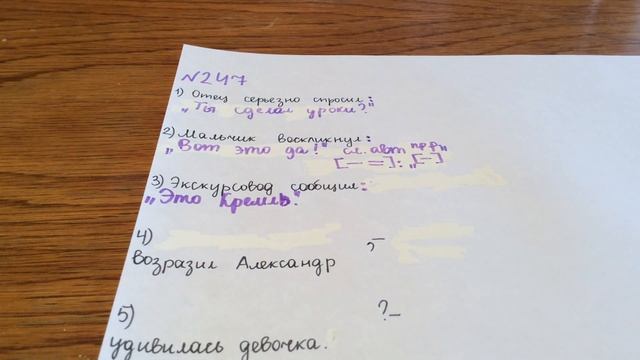 №247
1) Отец серьезно спросил:
„Ты сделал уроки?"
2) Мальчик воскликнул:
„Вот это да!" сл. авт пр.р.
[— =]: „[—]"
3) Экскурсовод сообщил:
„Это Кремль".
4) , –
возразил Александр
5) ? –
удивилась девочка.